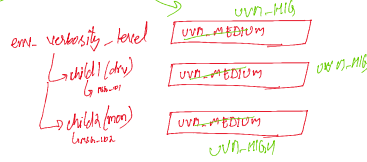 UVM_HIG
env_verbosity_level UVM_MEDIUM
child1 (drv) UVM_MEDIUM UVM_HIG
child2 (mon) UVM_MEDIUM
UVM_HIGH